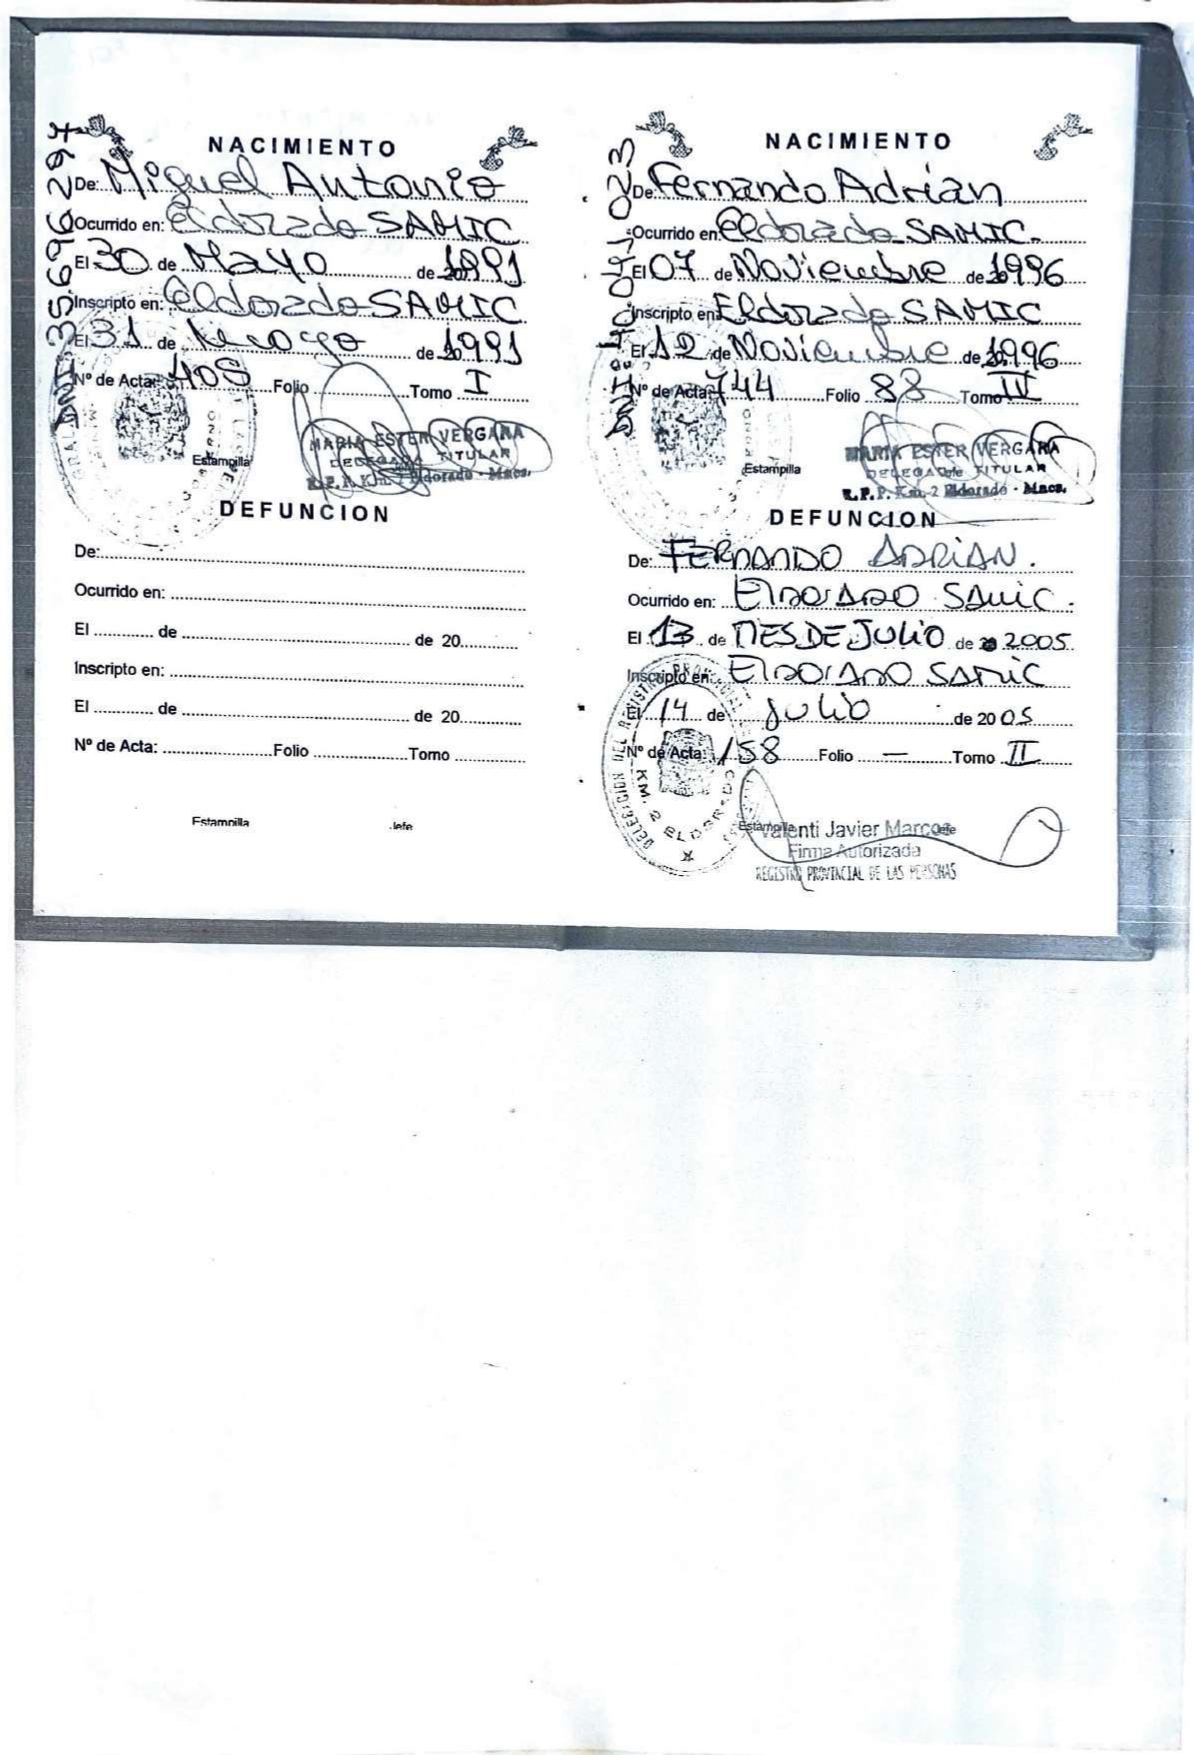 NACIMIENTO
De: Miguel Antonio
Ocurrido en: Eldorado SAMIC
El 30 de Mayo de 1991
Inscripto en: Eldorado SAMIC
El 31 de Mayo de 1991
Nº de Acta: 405 Folio Tomo I
MARIA ESTER VERGARA
DELEGADA TITULAR
R.P.P. Km. 2 Eldorado - Mnes.
Estampilla
DEFUNCION
De:
Ocurrido en:
El de de 20
Inscripto en:
El de de 20
Nº de Acta: Folio Tomo
Estampilla Jefe
NACIMIENTO
De: Fernando Adrián
Ocurrido en: Eldorado SAMIC.
El 07 de Noviembre de 1996
Inscripto en: Eldorado SAMIC
El 12 de Noviembre de 1996
Nº de Acta: 744 Folio 88 Tomo IV
MARIA ESTER VERGARA
DELEGADA TITULAR
R.P.P. Km. 2 Eldorado - Mnes.
Estampilla
DEFUNCION
De: FERNANDO ADRIÁN.
Ocurrido en: ELDORADO SAMIC.
El 13 de MES DE JULIO de 2005
Inscripto en: ELDORADO SAMIC
El 14 de JULIO de 2005
Nº de Acta: 158 Folio — Tomo II
KM. 2 ELDORADO
Estampilla Jefe
Javier Marcos
Firma Autorizada
REGISTRO PROVINCIAL DE LAS PERSONAS